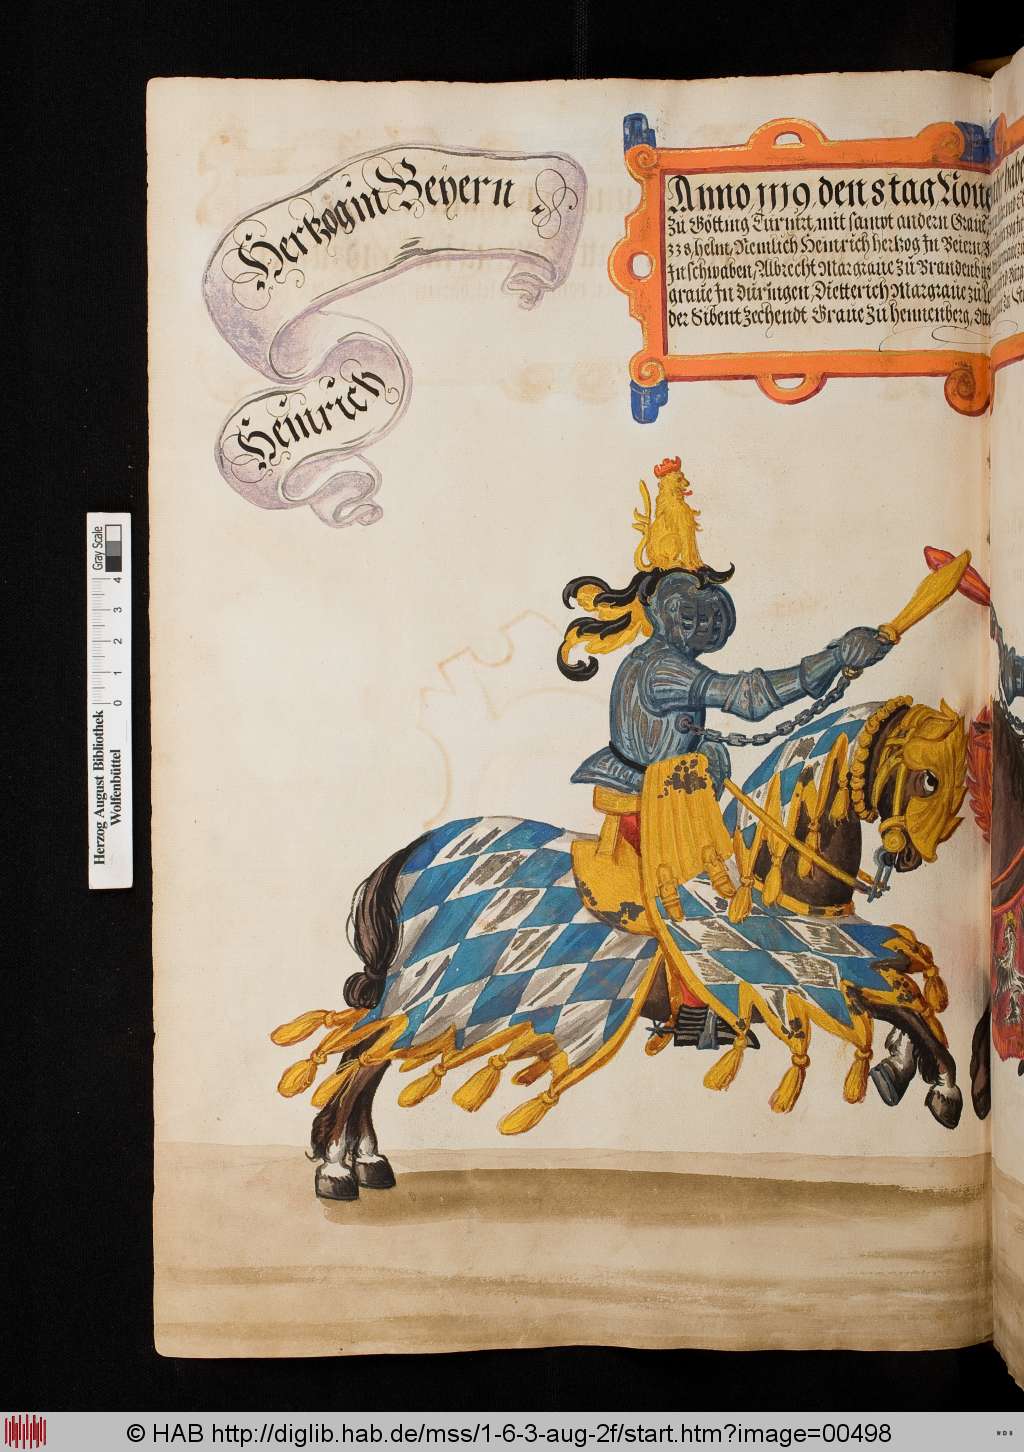 Hertzog in Beyern
Heinrich
Anno 1119 den 8 tag Noue
Zu Götting Turnirt, mit sampt andern Graue
338 helm, Nemlich Heinrich hertzog In Beiern,
In schwaben, Albrecht Margraue zu Brandenbür
graue In Düringen, Dietterich Margraue zu
der Sibentzechendt Graue Zu Hennenberg, Ott
Herzog August Bibliothek
Wolfenbüttel
0 1 2 3 4
Gray Scale
© HAB http://diglib.hab.de/mss/1-6-3-aug-2f/start.htm?image=00498
WDB